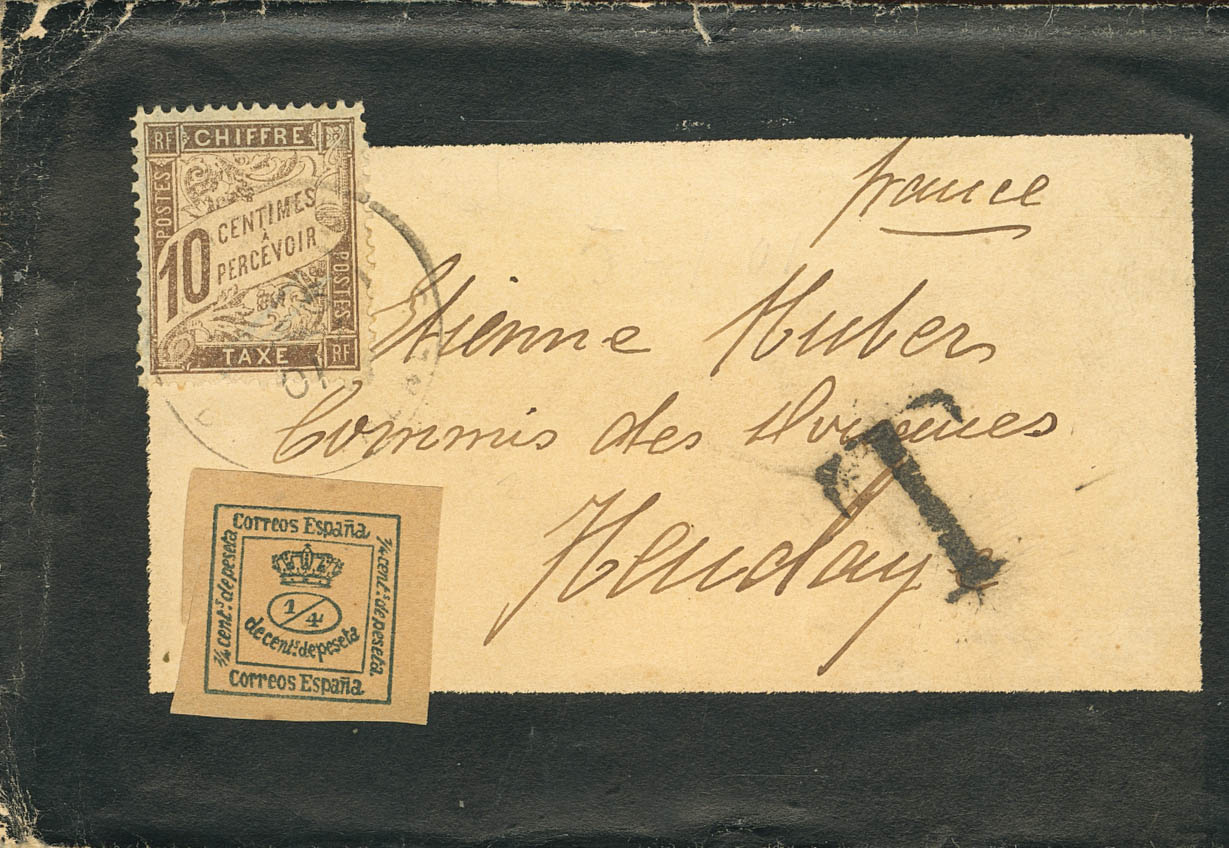 RF CHIFFRE
POSTES
10 CENTIMES
À
PERCEVOIR
POSTES
TAXE RF
01
france
Etienne Huber
Commis des Douanes
Hendaye
T
Correos España
1/4 cent.s de peseta
1/4 cent.s de peseta.
1/4
de cent.s de peseta
Correos España